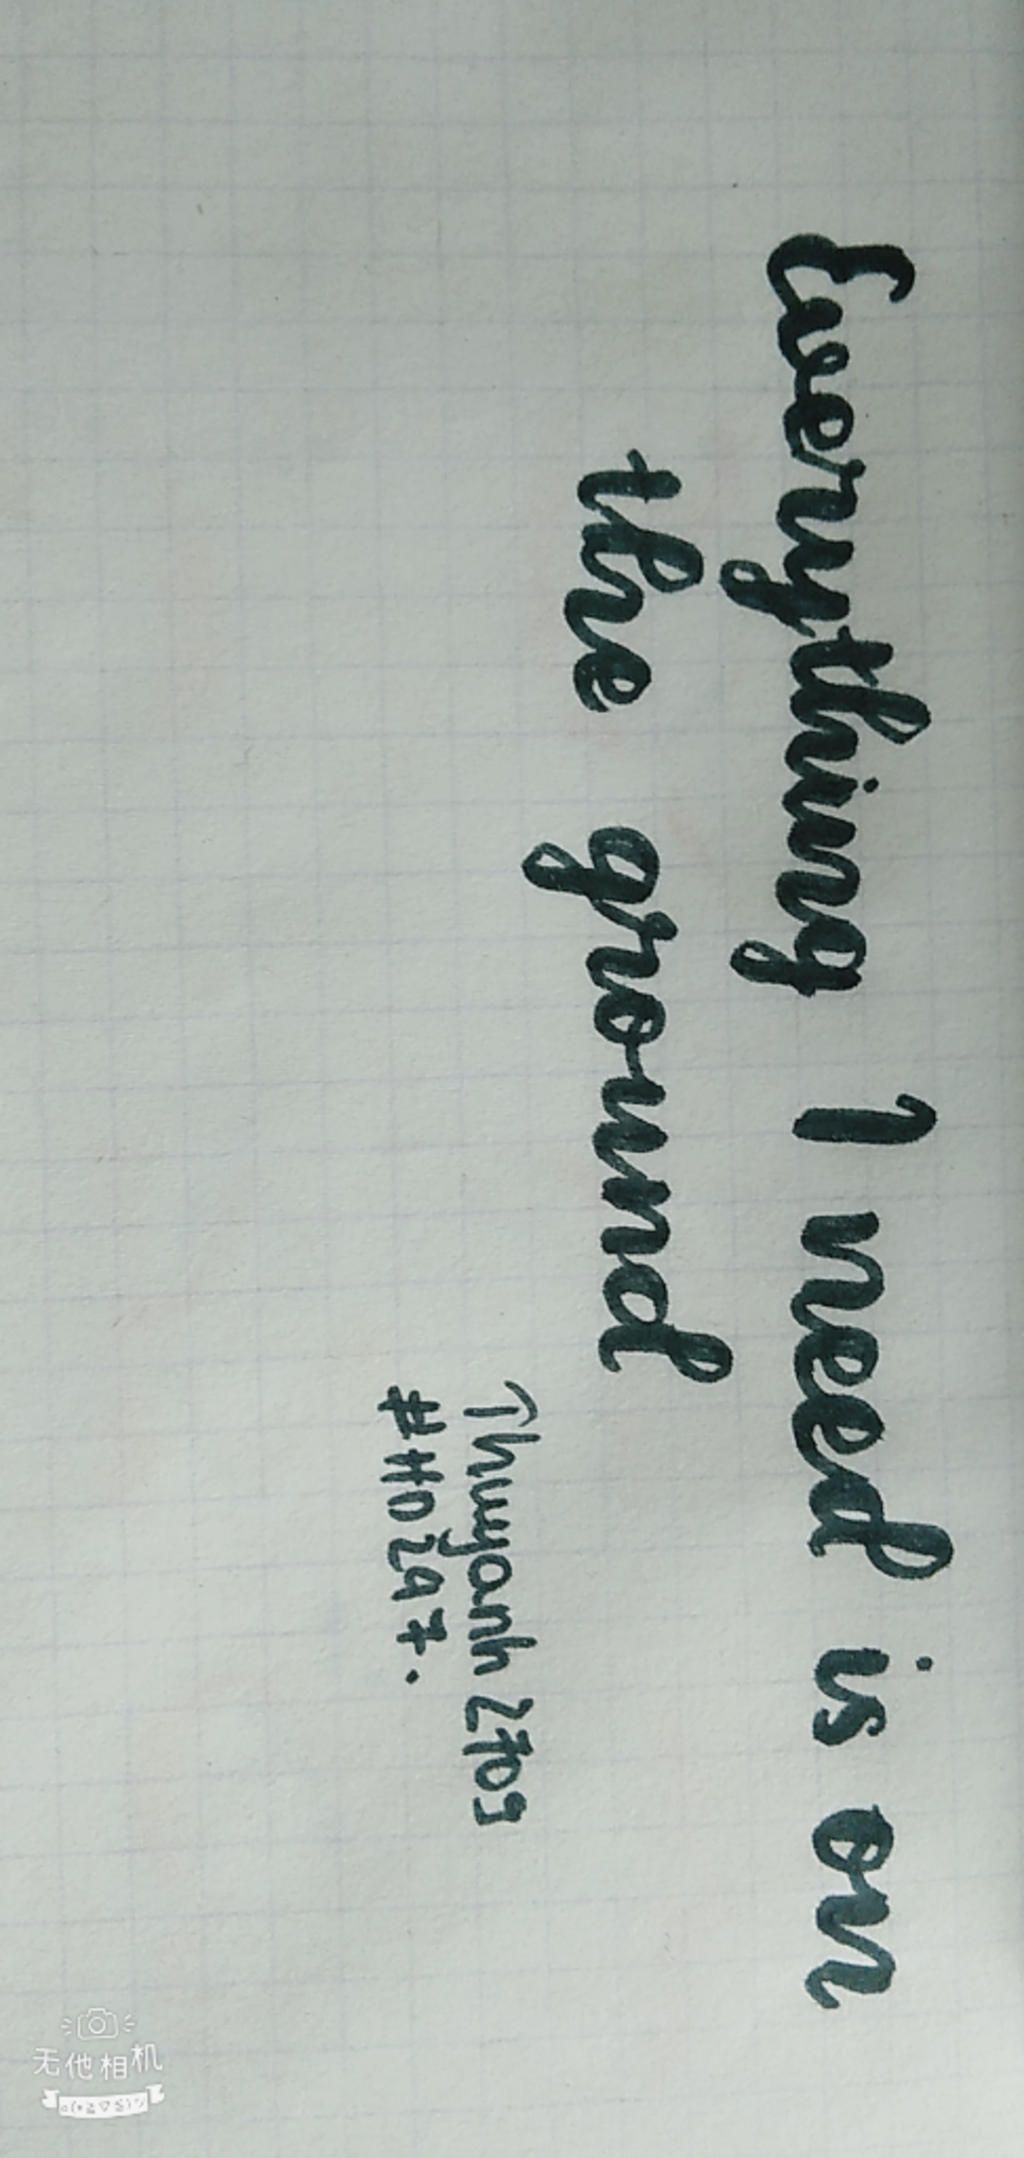 Everything I need is on
the ground
Thuyanh 2709
#HD247.
无他相机